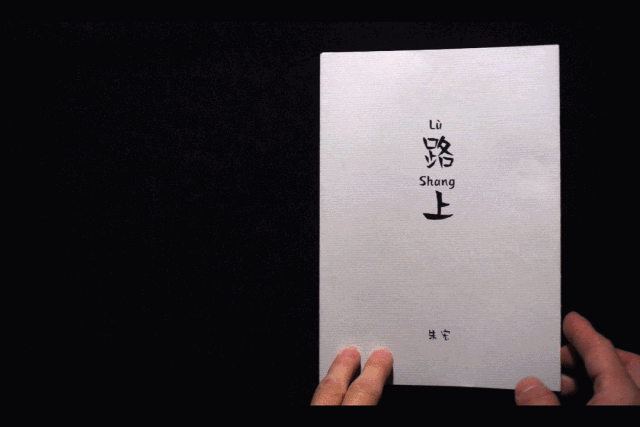 Lù
路
Shang
上
朱宅